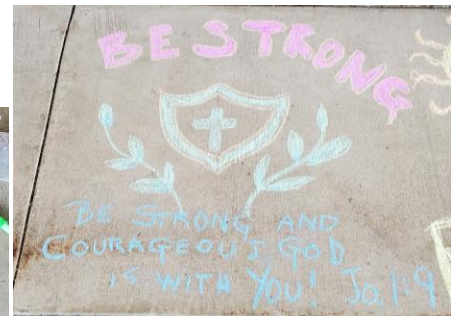 BE STRONG
BE STRONG AND
COURAGEOUS, GOD
IS WITH YOU! Jo, 1:9